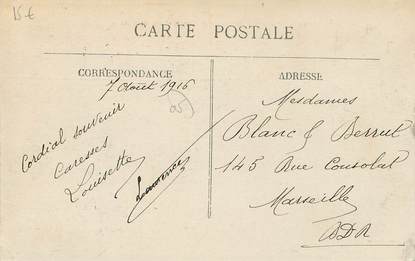 15 €
CARTE POSTALE
CORRESPONDANCE
7 Août 1916
Cordial souvenir
Caresses
Louisette
Laurence
05
ADRESSE
Mesdames
Blanc & Berrut
145 Rue Consolat
Marseille
BDR